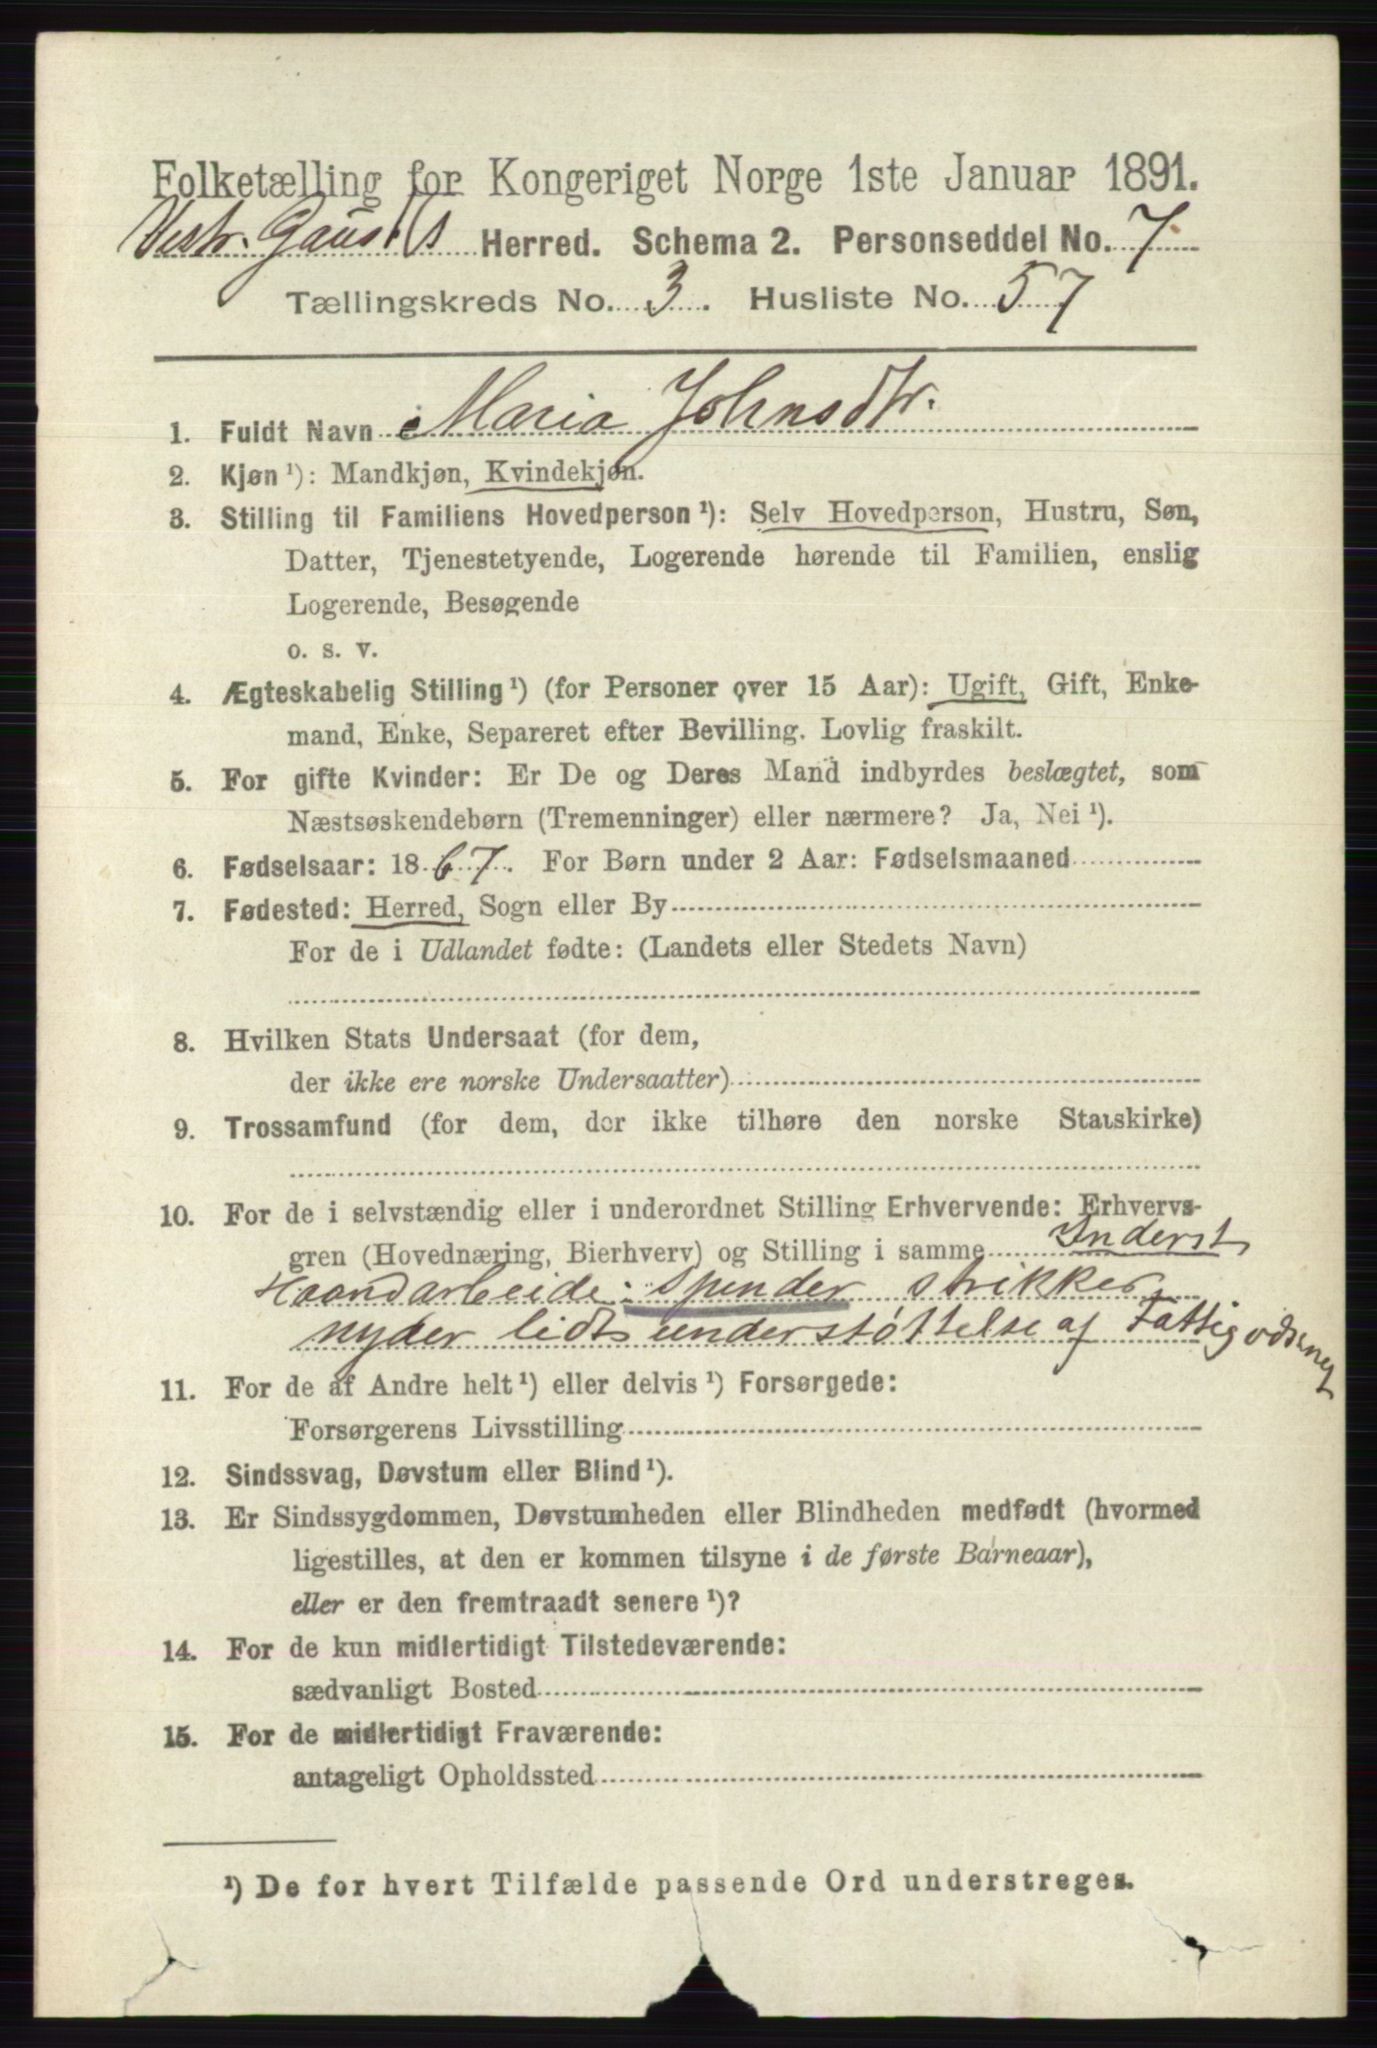 Folketælling for Kongeriget Norge 1ste Januar 1891.
Vestr. Gausdals Herred. Schema 2. Personseddel No. 7
Tællingskreds No. 3. Husliste No. 57
1. Fuldt Navn Maria Johnsdtr.
2. Kjøn ¹): Mandkjøn, Kvindekjøn.
3. Stilling til Familiens Hovedperson ¹): Selv Hovedperson, Hustru, Søn,
Datter, Tjenestetyende, Logerende hørende til Familien, enslig
Logerende, Besøgende
o. s. v.
4. Ægteskabelig Stilling ¹) (for Personer over 15 Aar): Ugift, Gift, Enke-
mand, Enke, Separeret efter Bevilling. Lovlig fraskilt.
5. For gifte Kvinder: Er De og Deres Mand indbyrdes beslægtet, som
Næstsøskendebørn (Tremenninger) eller nærmere? Ja, Nei ¹).
6. Fødselsaar: 1867. For Børn under 2 Aar: Fødselsmaaned
7. Fødested: Herred, Sogn eller By
For de i Udlandet fødte: (Landets eller Stedets Navn)
8. Hvilken Stats Undersaat (for dem,
der ikke ere norske Undersaatter)
9. Trossamfund (for dem, der ikke tilhøre den norske Statskirke)
10. For de i selvstændig eller i underordnet Stilling Erhvervende: Erhvervs-
gren (Hovednæring, Bierhverv) og Stilling i samme Inderst
Haandarbeide: spinder strikker,
nyder lidt understøttelse af Fattigvæsnet
11. For de af Andre helt ¹) eller delvis ¹) Forsørgede:
Forsørgerens Livsstilling
12. Sindssvag, Døvstum eller Blind ¹).
13. Er Sindssygdommen, Døvstumheden eller Blindheden medfødt (hvormed
ligestilles, at den er kommen tilsyne i de første Barneaar),
eller er den fremtraadt senere ¹)?
14. For de kun midlertidigt Tilstedeværende:
sædvanligt Bosted
15. For de midlertidigt Fraværende:
antageligt Opholdssted
¹) De for hvert Tilfælde passende Ord understreges.